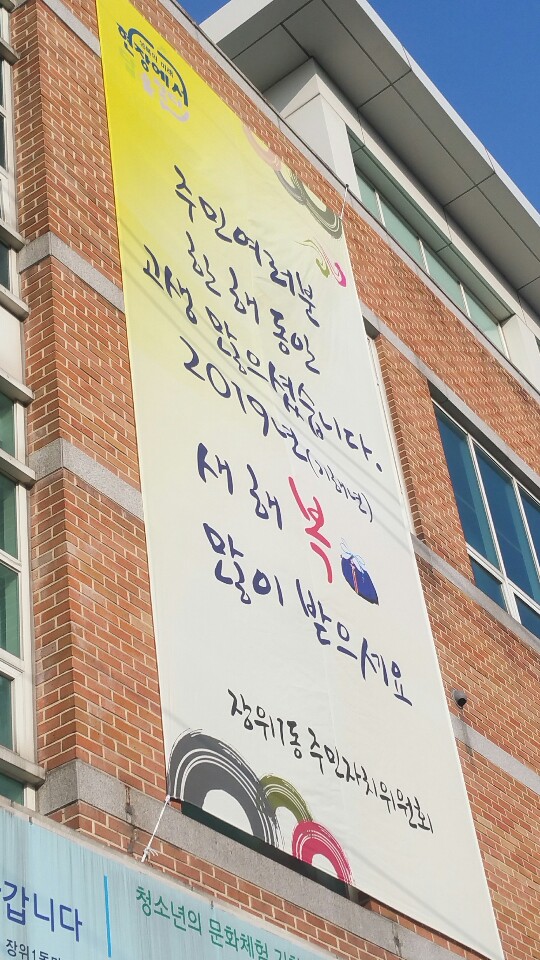 현장에서
주민여러분
한해동안
고생 많으셨습니다.
2019년(기해년)
새해 복
많이 받으세요
장위1동 주민자치위원회
갑니다
장위1동
청소년의 문화체험